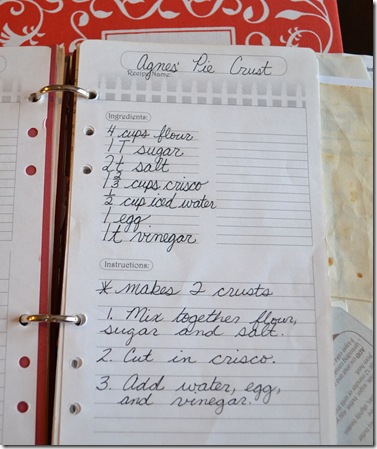 Agnes' Pie Crust
Recipe Name:
Ingredients:
4 cups flour
1 T sugar
2 t salt
1 2/3 cups crisco
1/2 cup iced water
1 egg
1 t vinegar
Instructions:
* makes 2 crusts
1. Mix together flour,
sugar and salt.
2. Cut in crisco.
3. Add water, egg,
and vinegar.